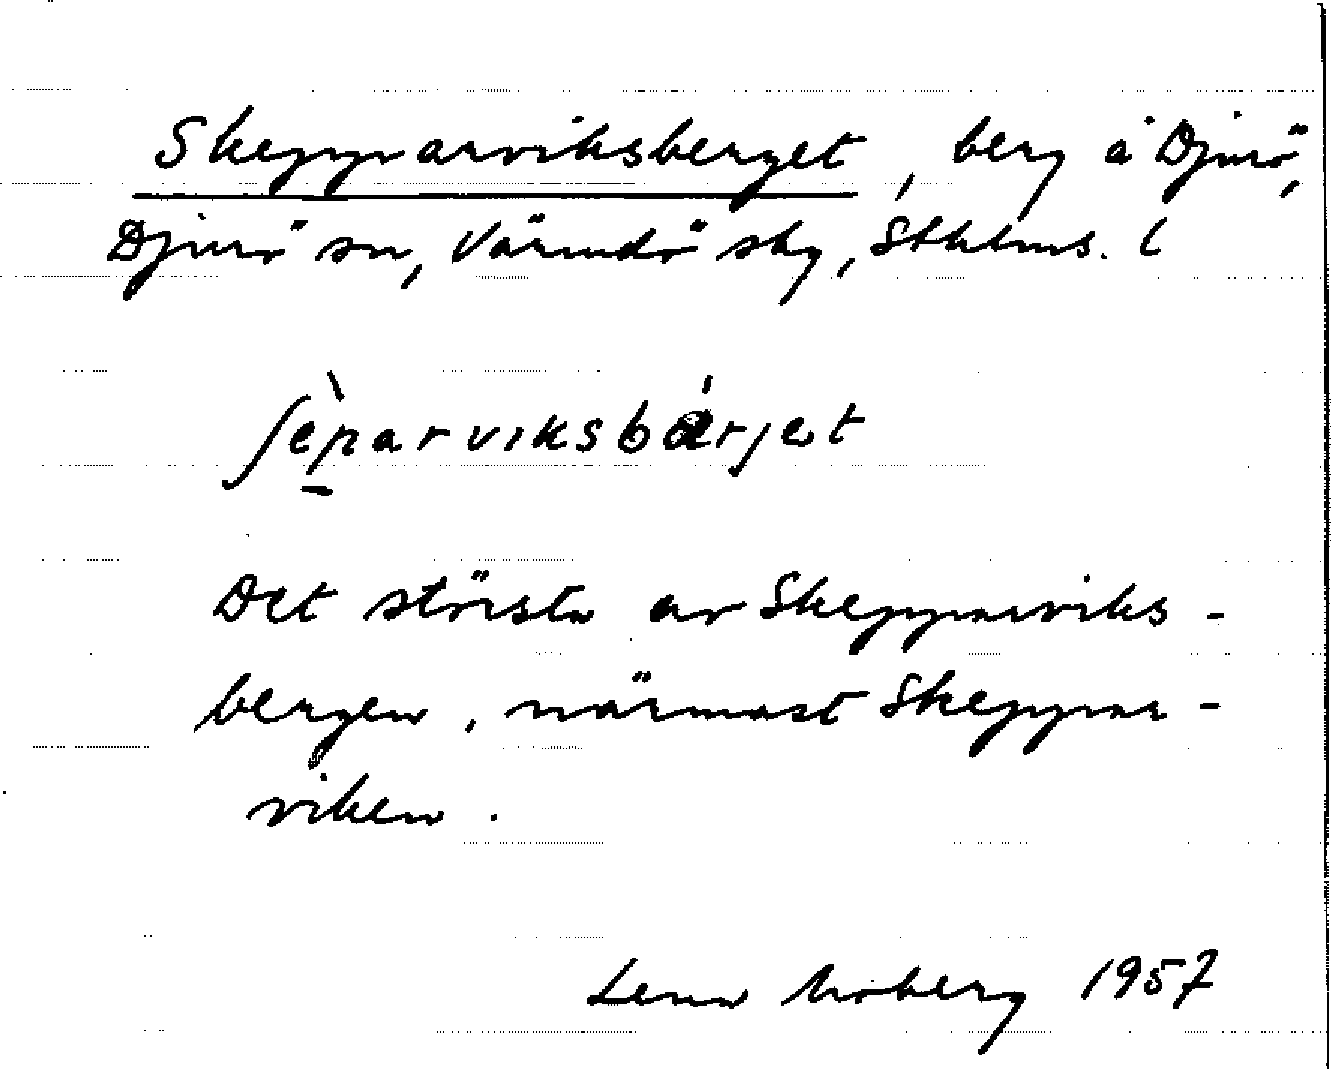 Skepparviksberget, berg å Djurö,
Djurö sn, Värmdö skg, Sthlms. l
ʃèparviksbárjet
Det största av Skepparviks-
bergen, närmast Skeppar-
viken.
Lena Moberg 1957